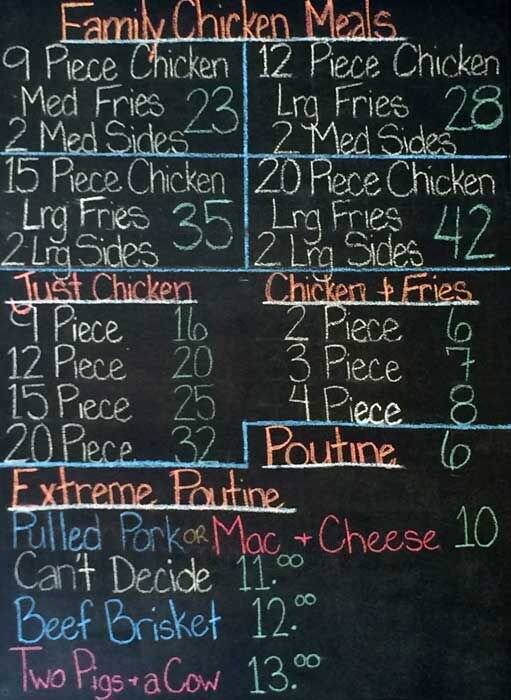 Family Chicken Meals
9 Piece Chicken
Med Fries 23
2 Med Sides
12 Piece Chicken
Lrg Fries 28
2 Med Sides
15 Piece Chicken
Lrg Fries 35
2 Lrg Sides
20 Piece Chicken
Lrg Fries 42
2 Lrg Sides
Just Chicken
9 Piece 16
12 Piece 20
15 Piece 25
20 Piece 32
Chicken + Fries
2 Piece 6
3 Piece 7
4 Piece 8
Poutine 6
Extreme Poutine
Pulled Pork OR Mac + Cheese 10
Can't Decide 11.00
Beef Brisket 12.00
Two Pigs + a Cow 13.00